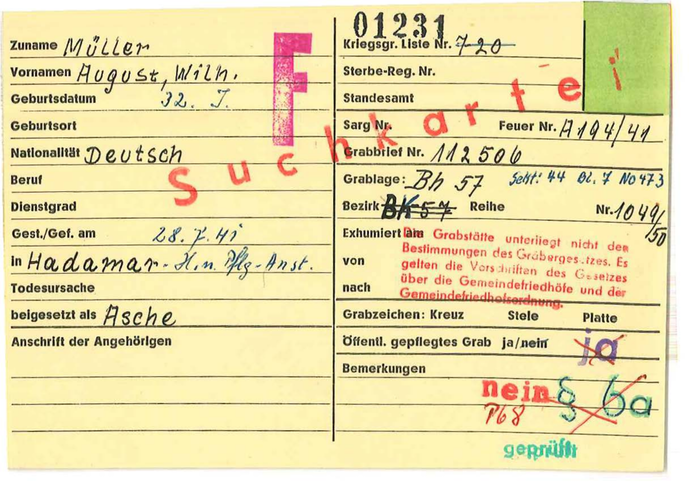 01231
Zuname Müller
Vornamen August, Wilh.
Geburtsdatum 32. J.
Geburtsort
Nationalität Deutsch
Beruf
Dienstgrad
Gest./Gef. am 28.7.41
in Hadamar - H.n. Pflg-Anst.
Todesursache
beigesetzt als Asche
Anschrift der Angehörigen
F
Suchkartei
Kriegsgr. Liste Nr. 7-20
Sterbe-Reg. Nr.
Standesamt
Sarg Nr. Feuer Nr. A194/41
Grabbrief Nr. 112506
Grablage: Bh 57 Sekt: 44 Bl. 7 No 473
Bezirk BK-57 Reihe Nr. 1049/50
Exhumiert am
von
nach
Die Grabstätte unterliegt nicht den
Bestimmungen des Gräbergesetzes. Es
gelten die Vorschriften des Gesetzes
über die Gemeindefriedhöfe und der
Gemeindefriedhofsordnung.
Grabzeichen: Kreuz Stele Platte
Öffentl. gepflegtes Grab ja/nein ja
Bemerkungen
nein § 6a
P68
geprüft